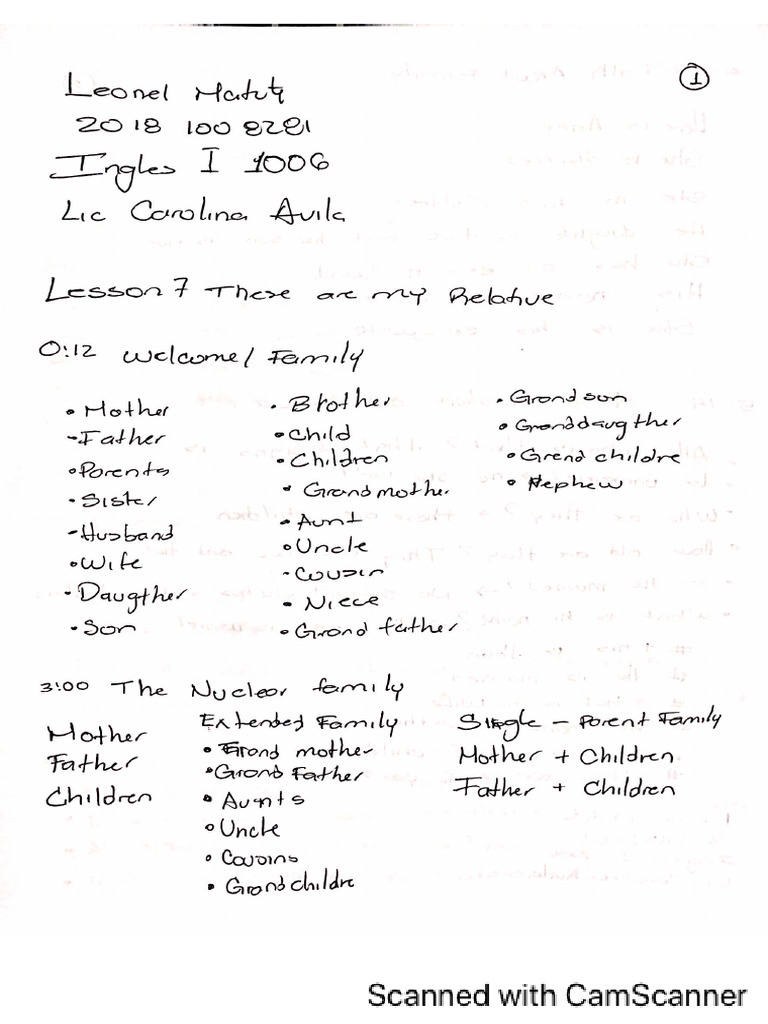 ①
Leonel Matute
2018 100 8281
Ingles I 1006
Lic Carolina Avila
Lesson 7 These are my Relative
0:12 Welcome / Family
• Mother
- Father
• Parents
- Sister
- Husband
• Wife
• Daugther
• Son
• Brother
• Child
• Children
• Grand mother
• Aunt
• Uncle
- Cousin
• Niece
• Grand father
• Grand son
• Granddaugther
• Grand childre
• Nephew
3:00 The Nuclear family
Mother
Father
Children
Extended Family
• Grand mother
• Grand Father
• Aunts
• Uncle
• Cousins
• Grand childre
Single - Parent Family
Mother + Children
Father + Children
Scanned with CamScanner